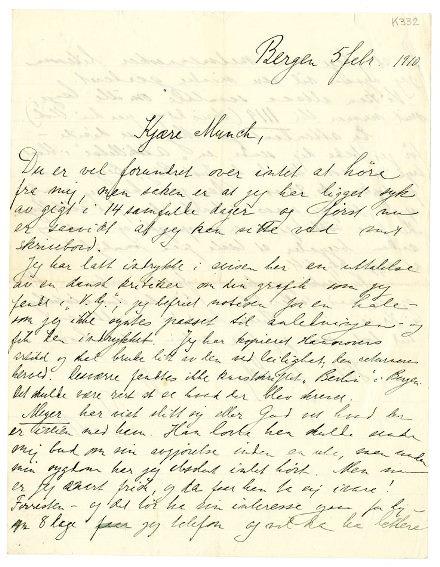 K332
Bergen 5 febr. 1910
Kjære Munch,
Du er vel forundret over intet at höre
fra mig, men saken er at jeg har ligget syk
av gigt i 14 samfulde dager og först nu
er saavidt at jeg kan sitte ved mit
skrivebord.
Jeg har latt indrykke i avisen her en uttalelse
av en dansk kritiker om din grafik som jeg
fandt i V.G.; jeg befriet notisen for en hale
som jeg ikke syntes passet til anledningen og
fik den indrykket. Jeg har kopieret Hannovers
artikel og skal bruke litt av den ved leilighet, den returneres
herved. Desværre fandtes ikke Berlin i Bergen.
Det skulde være rart at se hvad der blev skrevet.
Meyer har vist slitt sig eller Gud vet hvad der
er med ham. Han lovte han skulde sende
mig bud om sin avgjörelse inden en uke, men under
min sygdom har jeg absolut intet hört. Men nu
er jeg snart frisk, og da faar han ta sig ivare!
Forresten - og det bör ha sin interesse ogsaa for dig -
om 8 dage faar jeg telefon og vil da ha lettere